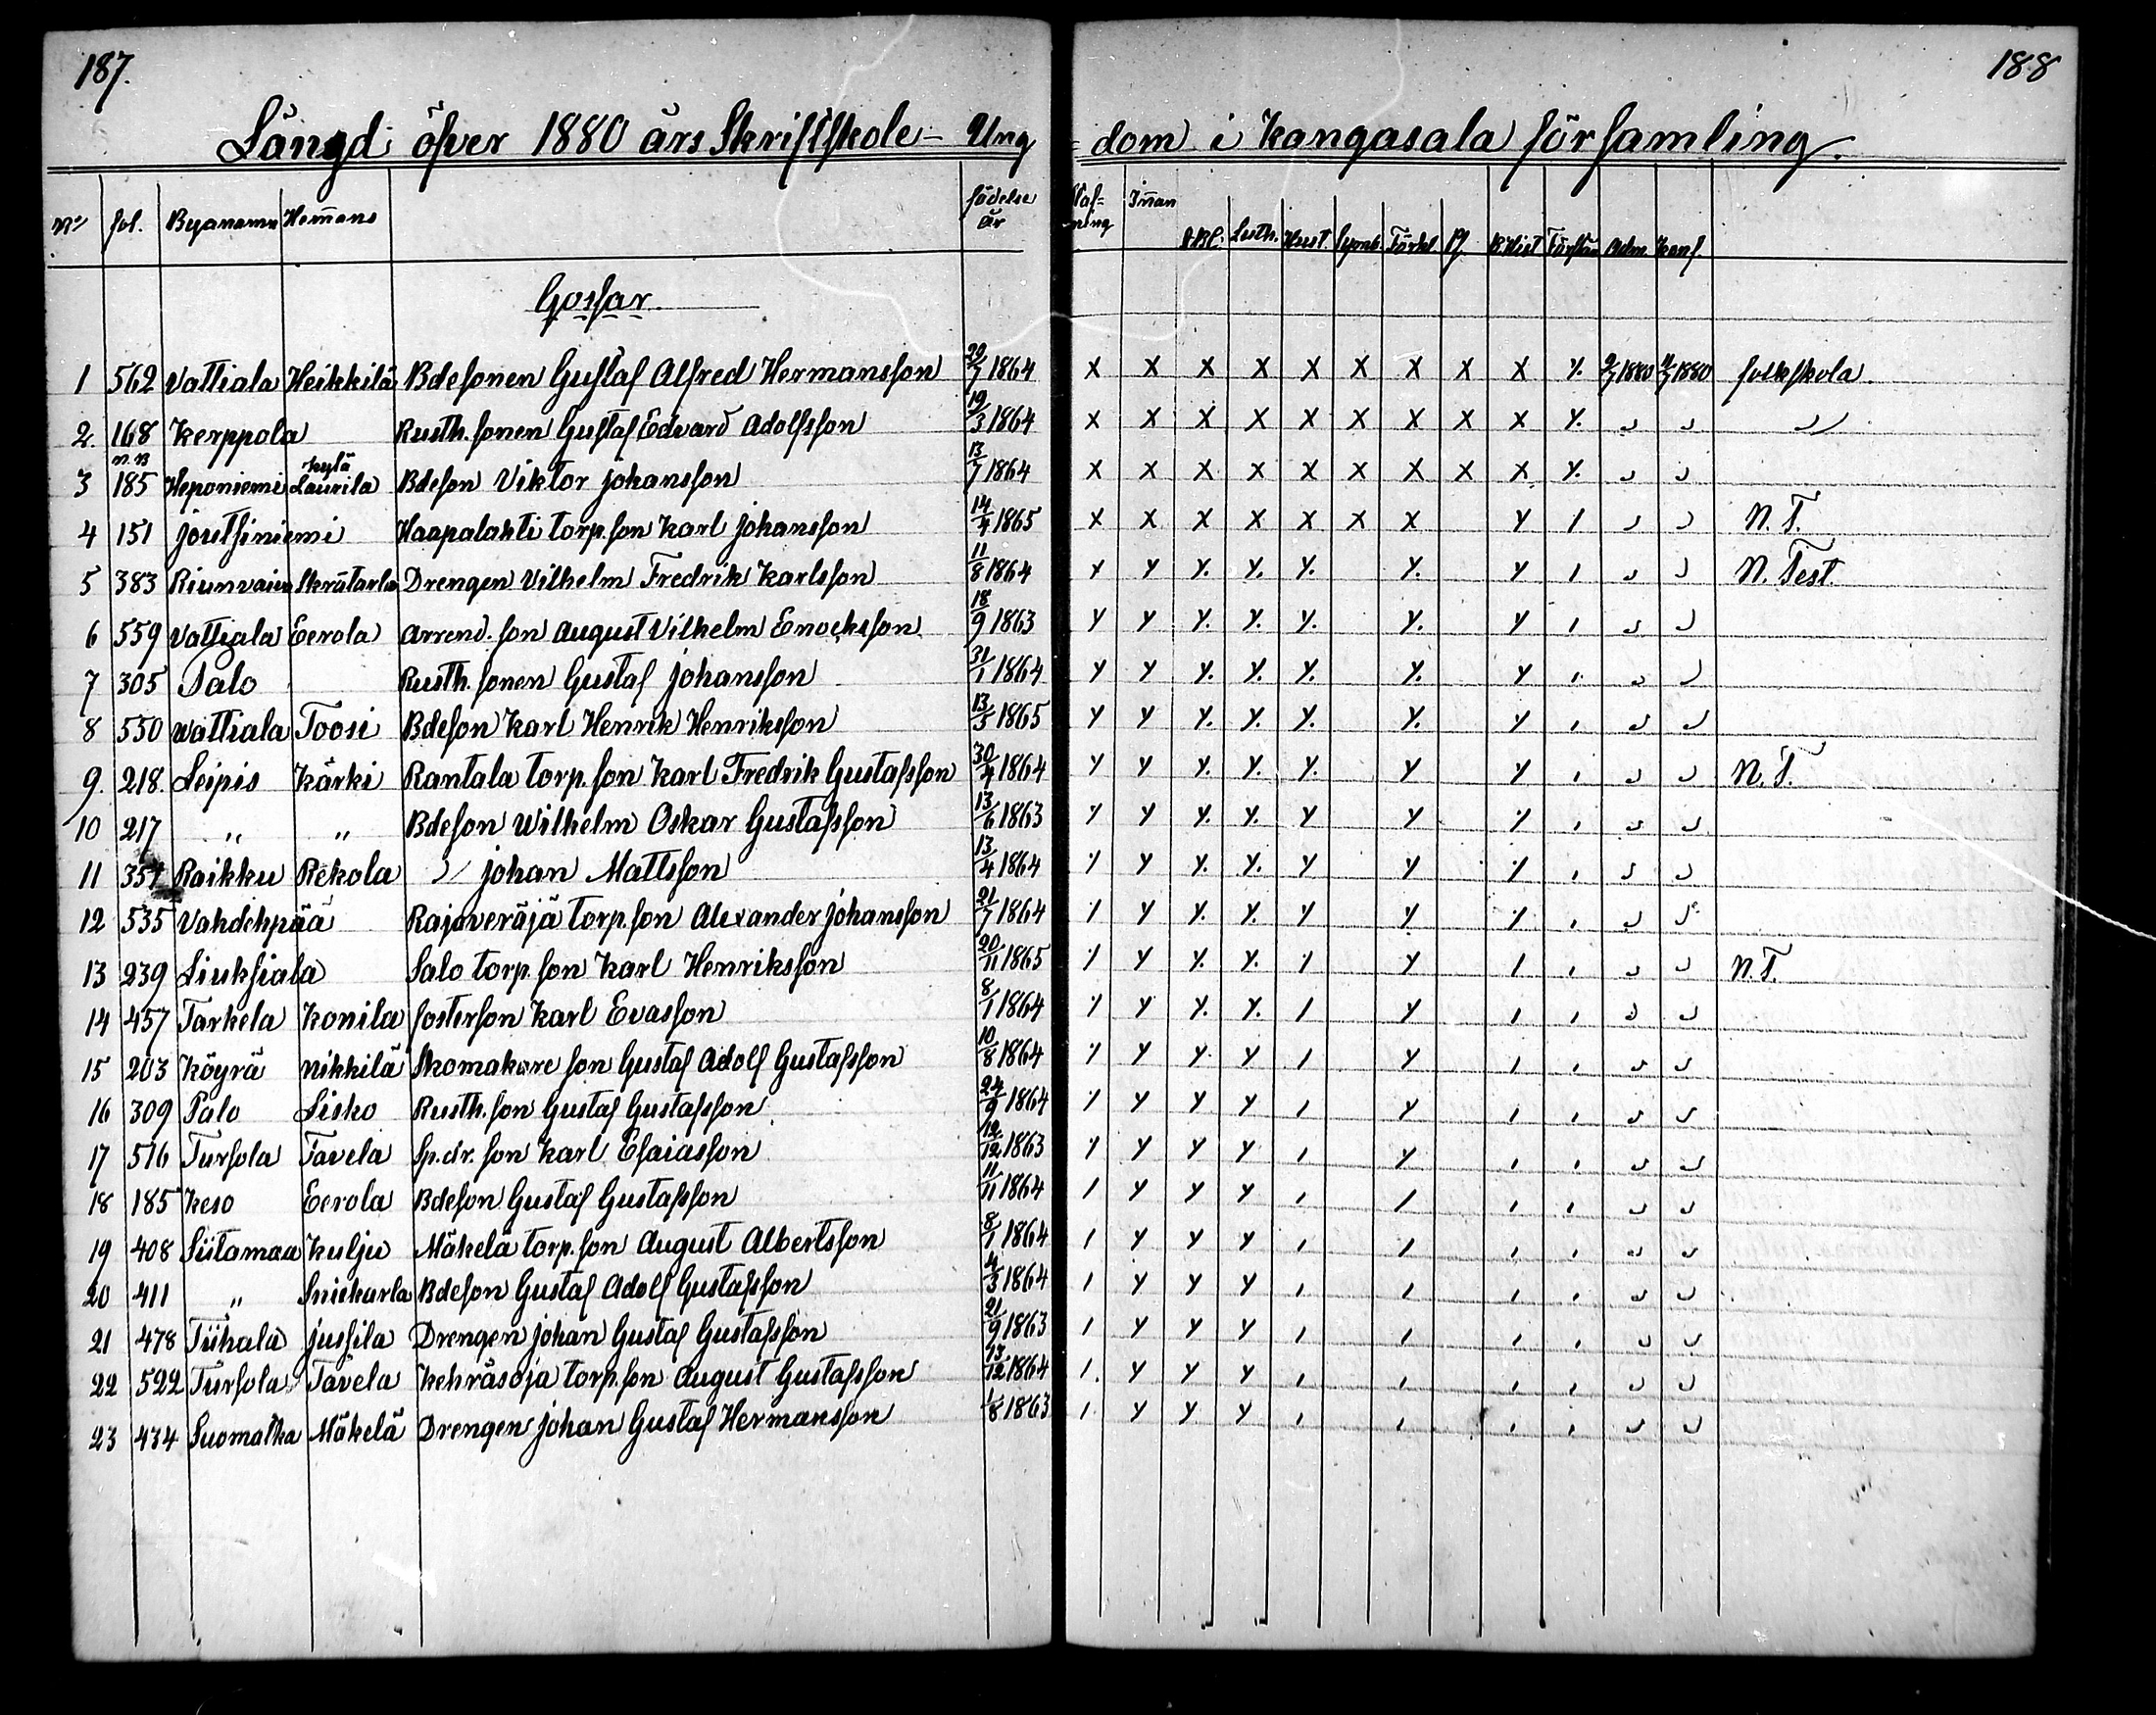 187.
188
Längd öfver 1880 års Skriftskole-Ung=dom i Kangasala församling.
No fol. Byanamn Hemans födelse år Staf=ning Innan ABC. Luth. Hust. Symb. Förkl. B.Hist Förstån Adm. Konf.
Gossar
1 562 Vattiala Heikkilä Bdesonen Gustaf Alfred Hermansson 29/7 1864 X X X X X X X X X Y. 9/7 1880 11/7 1880 folkskola
2. 168 Kerppola Rusth. sonen Gustaf Edvard Adolfsson 19/3 1864 X X X X X X X X X Y. " " "
3 n. B 185 Heponiemi kylä Laurila Bdeson Viktor Johansson 13/7 1864 X X X X X X X X X Y. " "
4 151 Joutsiniemi Haapalahti torp.son Karl Johansson 14/4 1865 X X X X X X X Y 1 " " N. T.
5 383 Drengen Vilhelm Fredrik Karlsson 11/8 1864 Y Y Y. Y. Y. Y. Y 1 " " N. Test.
6 559 Vattiala Eerola Arrend. son August Vilhelm Enocksson 18/9 1863 Y Y Y. Y. Y. Y. Y 1 " "
7 305 Palo Rusth. sonen Gustaf Johansson 31/1 1864 Y Y Y. Y. Y. Y. Y 1. " "
8 550 Wattiala Toosi Bdeson Karl Henrik Henriksson 13/5 1865 Y Y Y. Y. Y. Y. Y 1 " "
9. 218. Leipis Kärki Rantala torp.son Karl Fredrik Gustafsson 30/4 1864 Y Y Y. Y. Y. Y Y 1 " " N. T.
10 217 " " Bdeson Wilhelm Oskar Gustafsson 13/6 1863 Y Y Y. Y. Y Y Y 1 " "
11 354 Raikku Rekola " Johan Mattsson 13/4 1864 Y Y Y. Y. Y Y Y 1 " "
12 535 Vahdehpää Rajaveräjä torp.son Alexander Johansson 21/7 1864 1 Y Y. Y. Y Y Y 1 " "
13 239 Liuksiala Salo torp.son Karl Henriksson 20/11 1865 Y Y Y. Y. 1 Y 1 1 " " N. T.
14 457 Tarkela Konila fosterson Karl Evasson 8/1 1864 Y Y Y. Y. 1 Y 1 1 " "
15 203 Köyrä Nikkilä Skomakare son Gustaf Adolf Gustafsson 10/8 1864 Y Y Y. Y 1 Y 1 1 " "
16 309 Palo Lisko Rusth. son Gustaf Gustafsson 24/9 1864 Y Y Y Y 1 Y 1 1 " "
17 516 Tursola Tavela Sp.dr. son Karl Esaiasson 12/12 1863 Y Y Y Y 1 Y 1 1 " "
18 185 Keso Eerola Bdeson Gustaf Gustafsson 11/11 1864 1 Y Y Y 1 1 1 1 " "
19 408 Siitamaa Kulju Mäkelä torp.son August Albertsson 8/1 1864 1 Y Y Y 1 1 1 1 " "
20 411 " Sniekarla Bdeson Gustaf Adolf Gustafsson 4/3 1864 1 Y Y Y 1 1 1 1 " "
21 478 Tiihala Jussila Drengen Johan Gustaf Gustafsson 21/9 1863 1 Y Y Y 1 1 1 1 " "
22 522 Tursola Tavela Kehräsoja torp.son August Gustafsson 13/12 1864 1. Y Y Y 1 1 1 1 " "
23 434 Suomatka Mäkelä Drengen Johan Gustaf Hermansson 1/8 1863 1 Y Y Y 1 1 1 1 " "